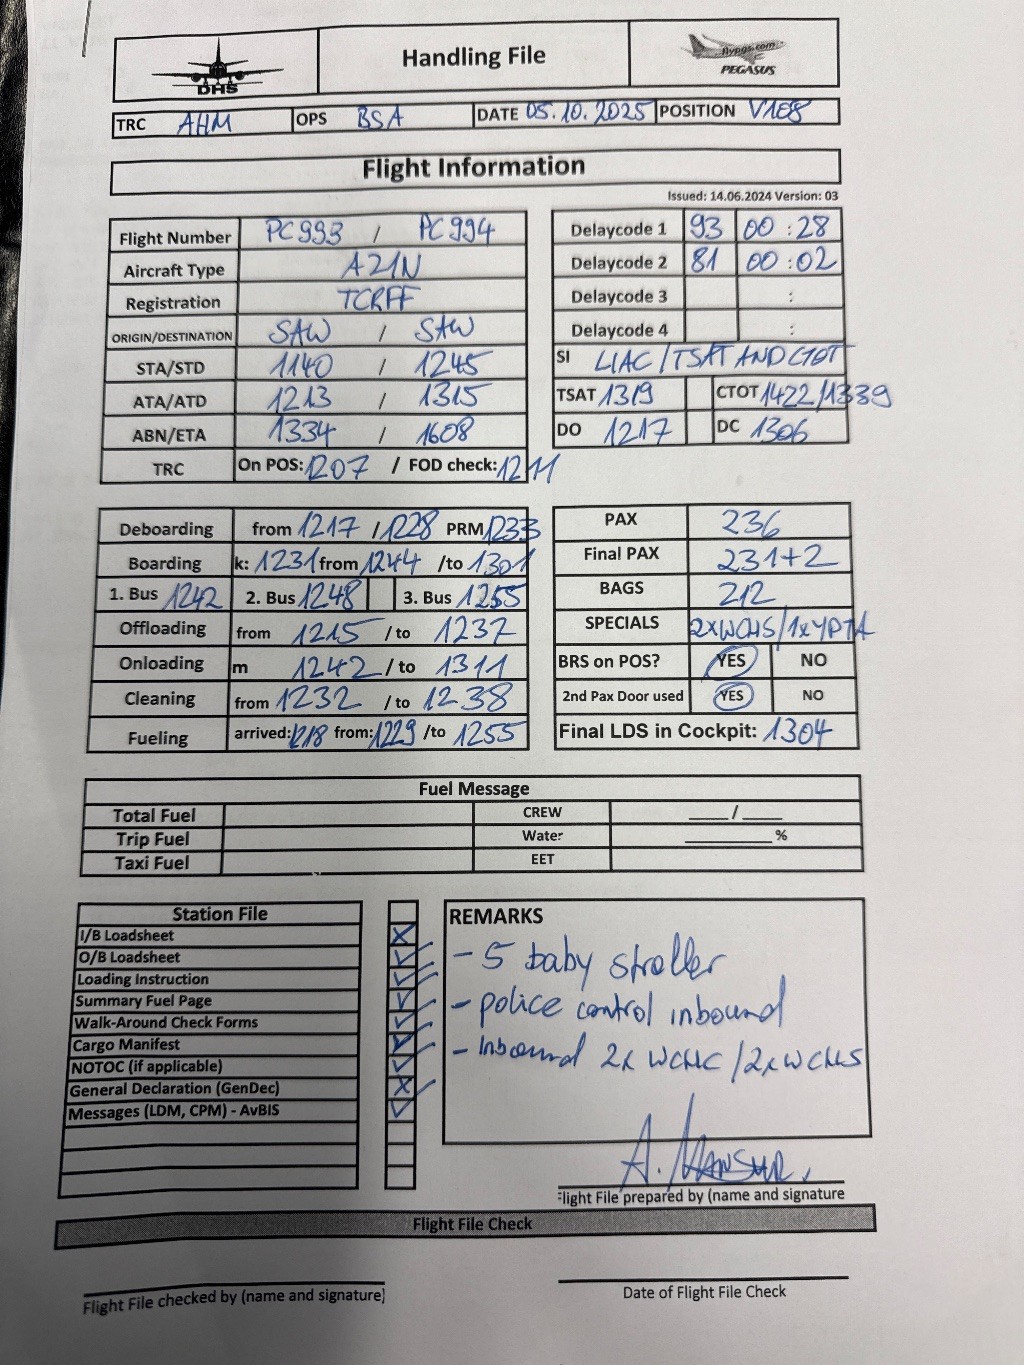 DHS
Handling File
flypgs.com
PEGASUS
TRC AHM OPS BSA DATE 05.10.2025 POSITION V108
Flight Information
Issued: 14.06.2024 Version: 03
Flight Number PC993 / PC994
Aircraft Type A21N
Registration TCRFF
ORIGIN/DESTINATION SAW / SAW
STA/STD 1140 / 1245
ATA/ATD 1213 / 1315
ABN/ETA 1334 / 1608
TRC On POS: 1207 / FOD check: 1211
Delaycode 1 93 00:28
Delaycode 2 81 00:02
Delaycode 3 :
Delaycode 4 :
SI LIAC/TSAT AND CTOT
TSAT 1319 CTOT 1422/1339
DO 1217 DC 1306
Deboarding from 1217 / 1228 PRM 1233
Boarding k: 1231 from 1244 /to 1301
1. Bus 1242 2. Bus 1248 3. Bus 1255
Offloading from 1215 /to 1237
Onloading m 1242 /to 1311
Cleaning from 1232 /to 1238
Fueling arrived: 1218 from: 1229 /to 1255
PAX 236
Final PAX 231+2
BAGS 212
SPECIALS 2xWCHS/1xYPTA
BRS on POS? YES NO
2nd Pax Door used YES NO
Final LDS in Cockpit: 1304
Fuel Message
Total Fuel CREW ____/____
Trip Fuel Water ________%
Taxi Fuel EET
Station File
I/B Loadsheet
O/B Loadsheet
Loading Instruction
Summary Fuel Page
Walk-Around Check Forms
Cargo Manifest
NOTOC (if applicable)
General Declaration (GenDec)
Messages (LDM, CPM) - AvBIS
REMARKS
- 5 baby stroller
- police control inbound
- Inbound 2x WCHC /2xWCHS
A. Mansur.
Flight File prepared by (name and signature
Flight File Check
Flight File checked by (name and signature)
Date of Flight File Check